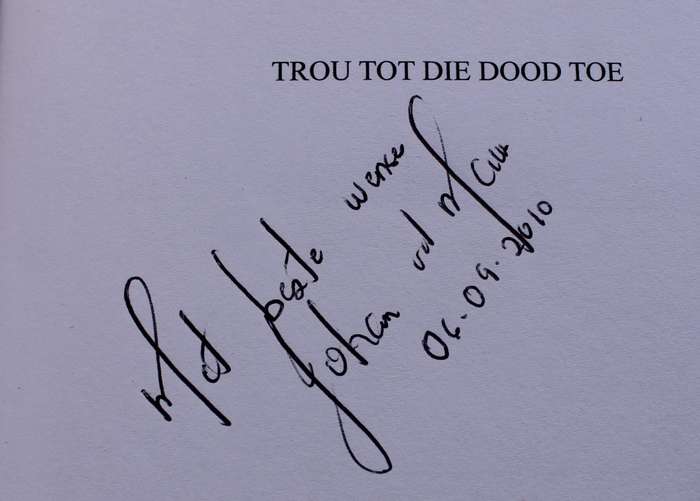 TROU TOT DIE DOOD TOE
Met beste wense
Johan vd Merwe
06.09.2010